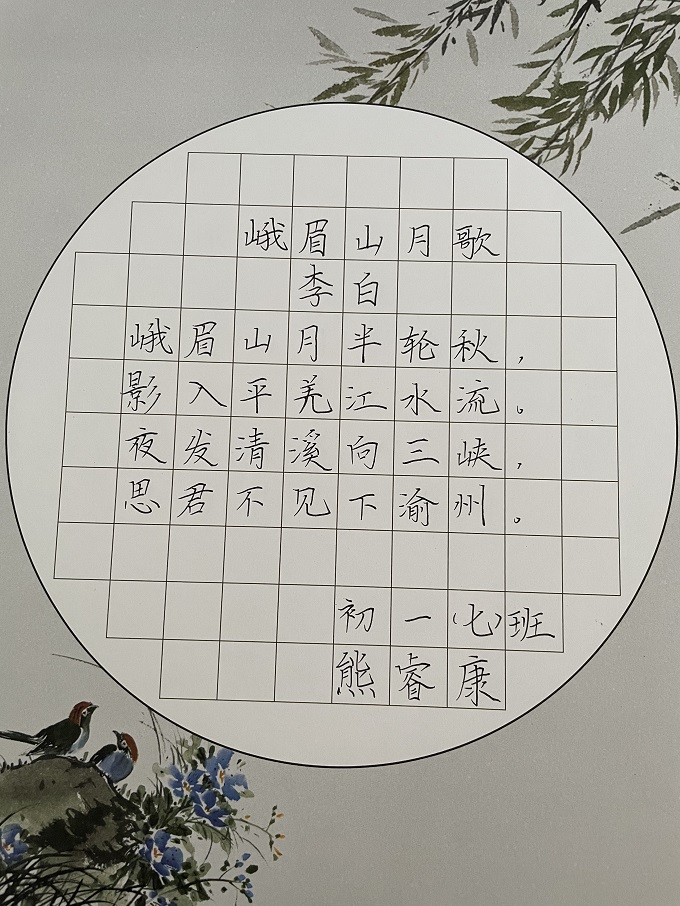 峨眉山月歌
李白
峨眉山月半轮秋，
影入平羌江水流。
夜发清溪向三峡，
思君不见下渝州。
初一（七）班
熊睿康